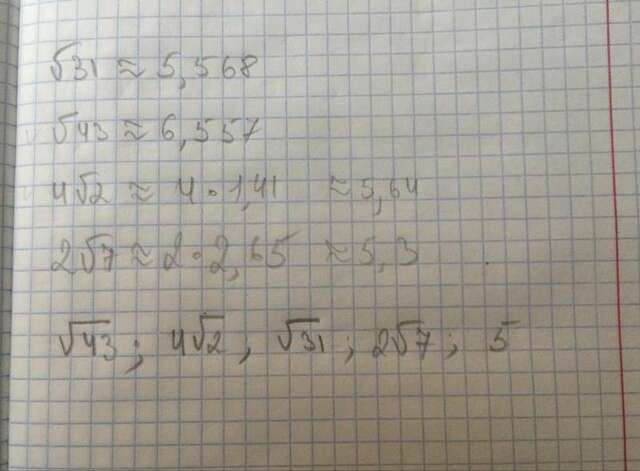 √31 ≈ 5,568
√43 ≈ 6,557
4√2 ≈ 4 · 1,41 ≈ 5,64
2√7 ≈ 2 · 2,65 ≈ 5,3
√43; 4√2, √31; 2√7; 5